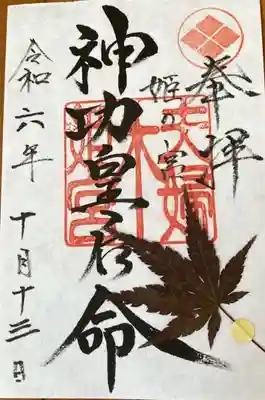 奉拝
姫の宮
夫婦
木
姫宮
神功皇后命
令和六年 十月十三日